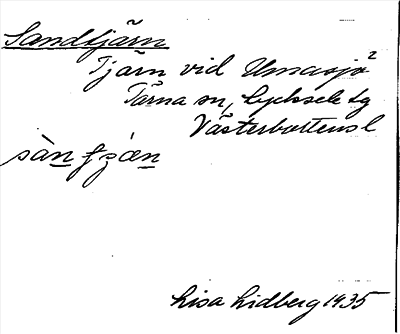 Sandtjärn
Tjärn vid Umasjö 2
Tärna sn, Lycksele lg
Västerbottens l
Lisa Lidberg 1935